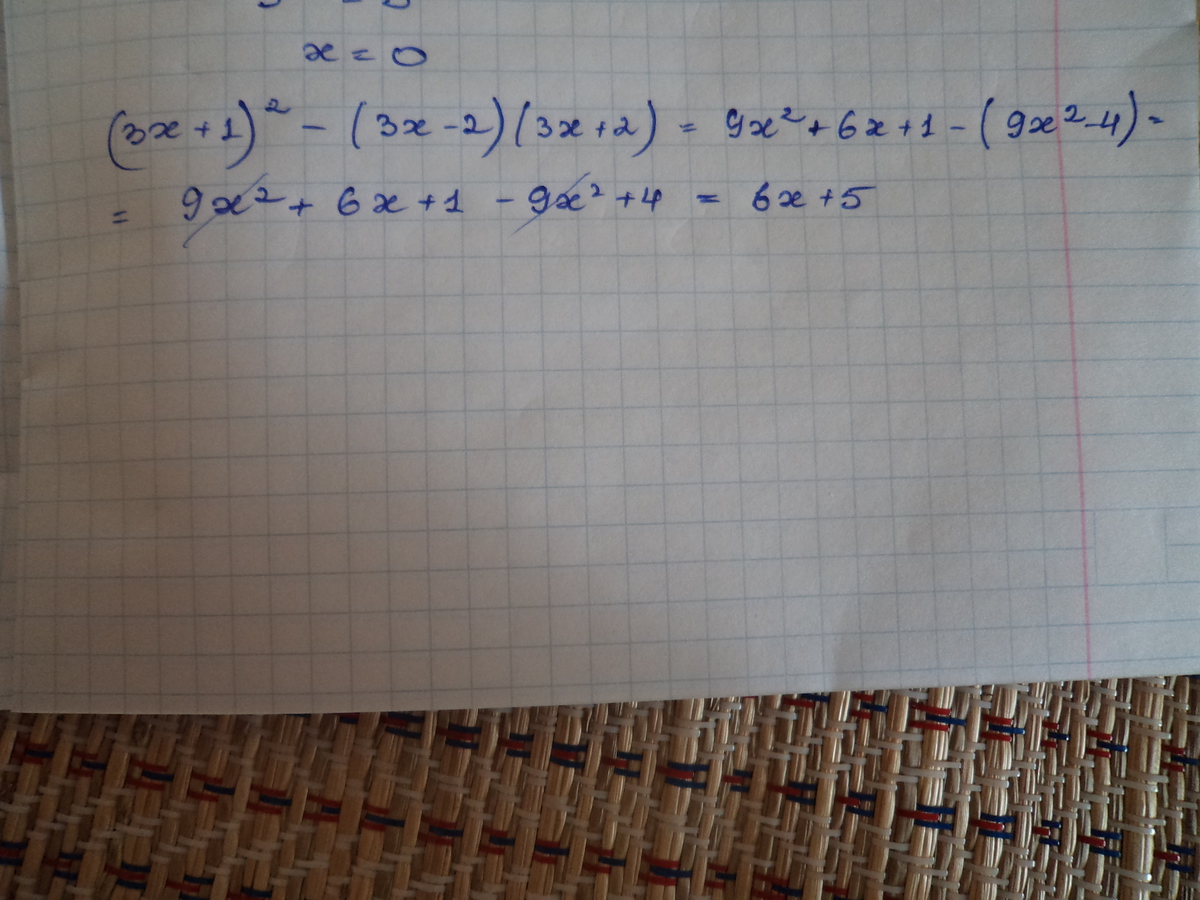 x = 0
(3x + 1)² - (3x - 2)(3x + 2) = 9x² + 6x + 1 - (9x² - 4) =
= 9x² + 6x + 1 - 9x² + 4 = 6x + 5